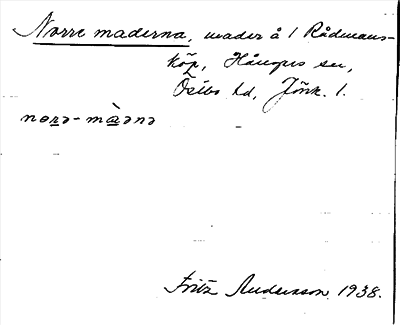 Norre maderna, mader å 1 Rådmans-
köp, Hångers sn,
Östbo hd, Jönk. l.
norə-màdənə
Fritz Andersson 1938.